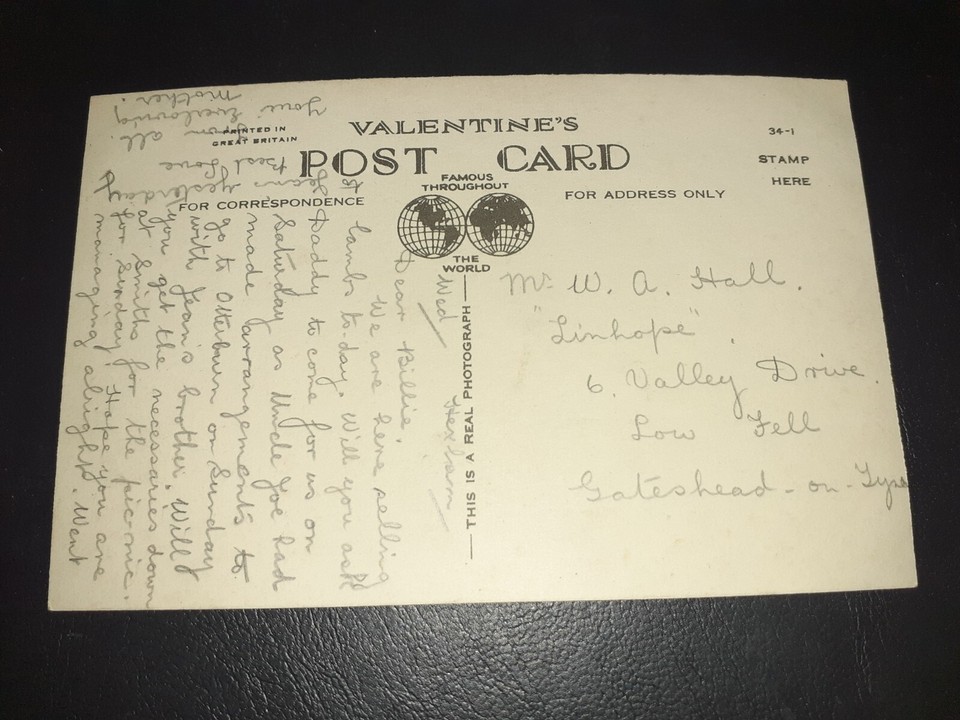 VALENTINE'S
POST CARD
PRINTED IN
GREAT BRITAIN
34-1
STAMP
HERE
FAMOUS
THROUGHOUT
THE
WORLD
FOR CORRESPONDENCE
FOR ADDRESS ONLY
THIS IS A REAL PHOTOGRAPH
Wed Hexham
Dear Billie,
We are here selling
lambs to-day. Will you ask
Daddy to come for us on
Saturday as Uncle Joe had
made arrangements to
go to Otterburn on Sunday
with Jean's brother. Will
you get the necessaries down
at Smiths for the picnic.
for Sunday. Hope you are
managing alright. Went
to
Jean's yesterday
Best Love
from all.
Your Everloving
Mother.
Mr W. A. Hall.
"Linhope",
6. Valley Drive.
Low Fell
Gateshead-on-Tyne